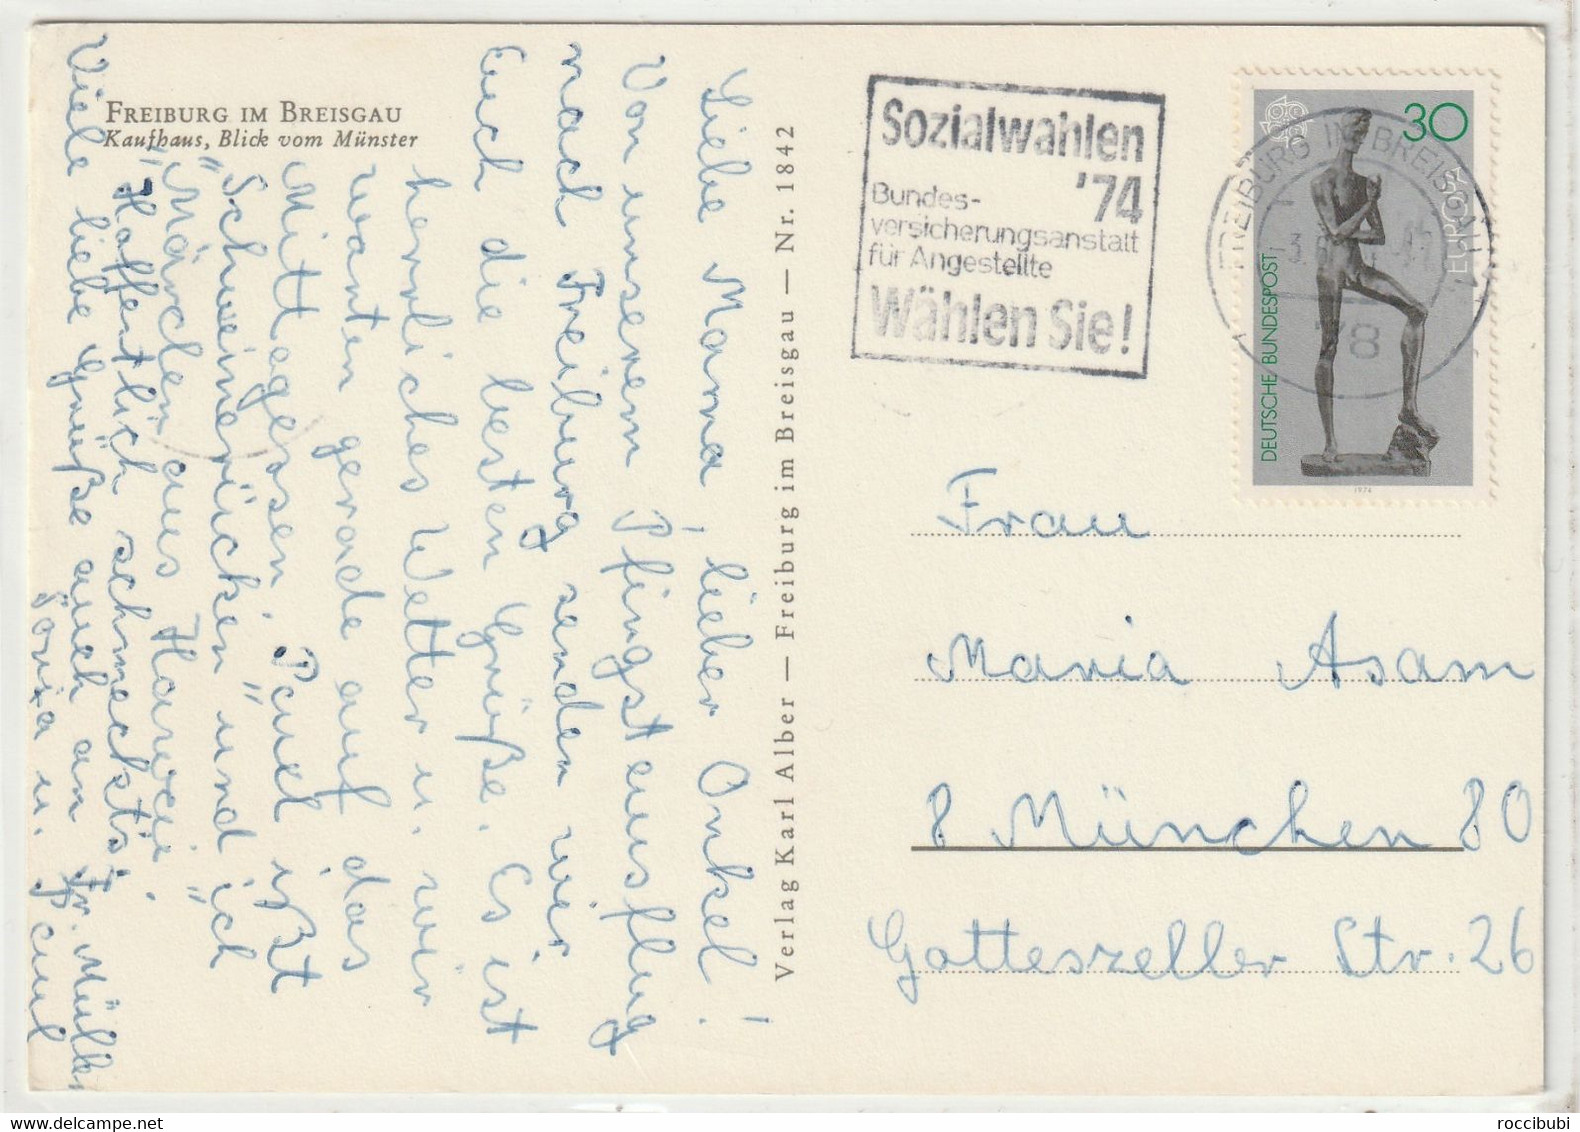 FREIBURG IM BREISGAU
Kaufhaus, Blick vom Münster
Liebe Mama, lieber Onkel!
Von unserem Pfingstausflug
nach Freiburg senden wir
Euch die besten Grüße. Es ist
herrliches Wetter u. wir
warten gerade auf das
Mittagessen. Paul ißt
"Schweinerücken" und ich
"Märchen aus Hawaii".
Hoffentlich schmeckts!
Viele liebe Grüße auch an Fr. Müller
Sonja u. Paul
Verlag Karl Alber — Freiburg im Breisgau — Nr. 1842
Sozialwahlen
'74
Bundes-
versicherungsanstalt
für Angestellte
Wählen Sie!
30
EUROPA
DEUTSCHE BUNDESPOST
1974
FREIBURG IM BREISGAU
78
Frau
Maria Asam
8 München 80
Gotteszeller Str. 26
roccibubi